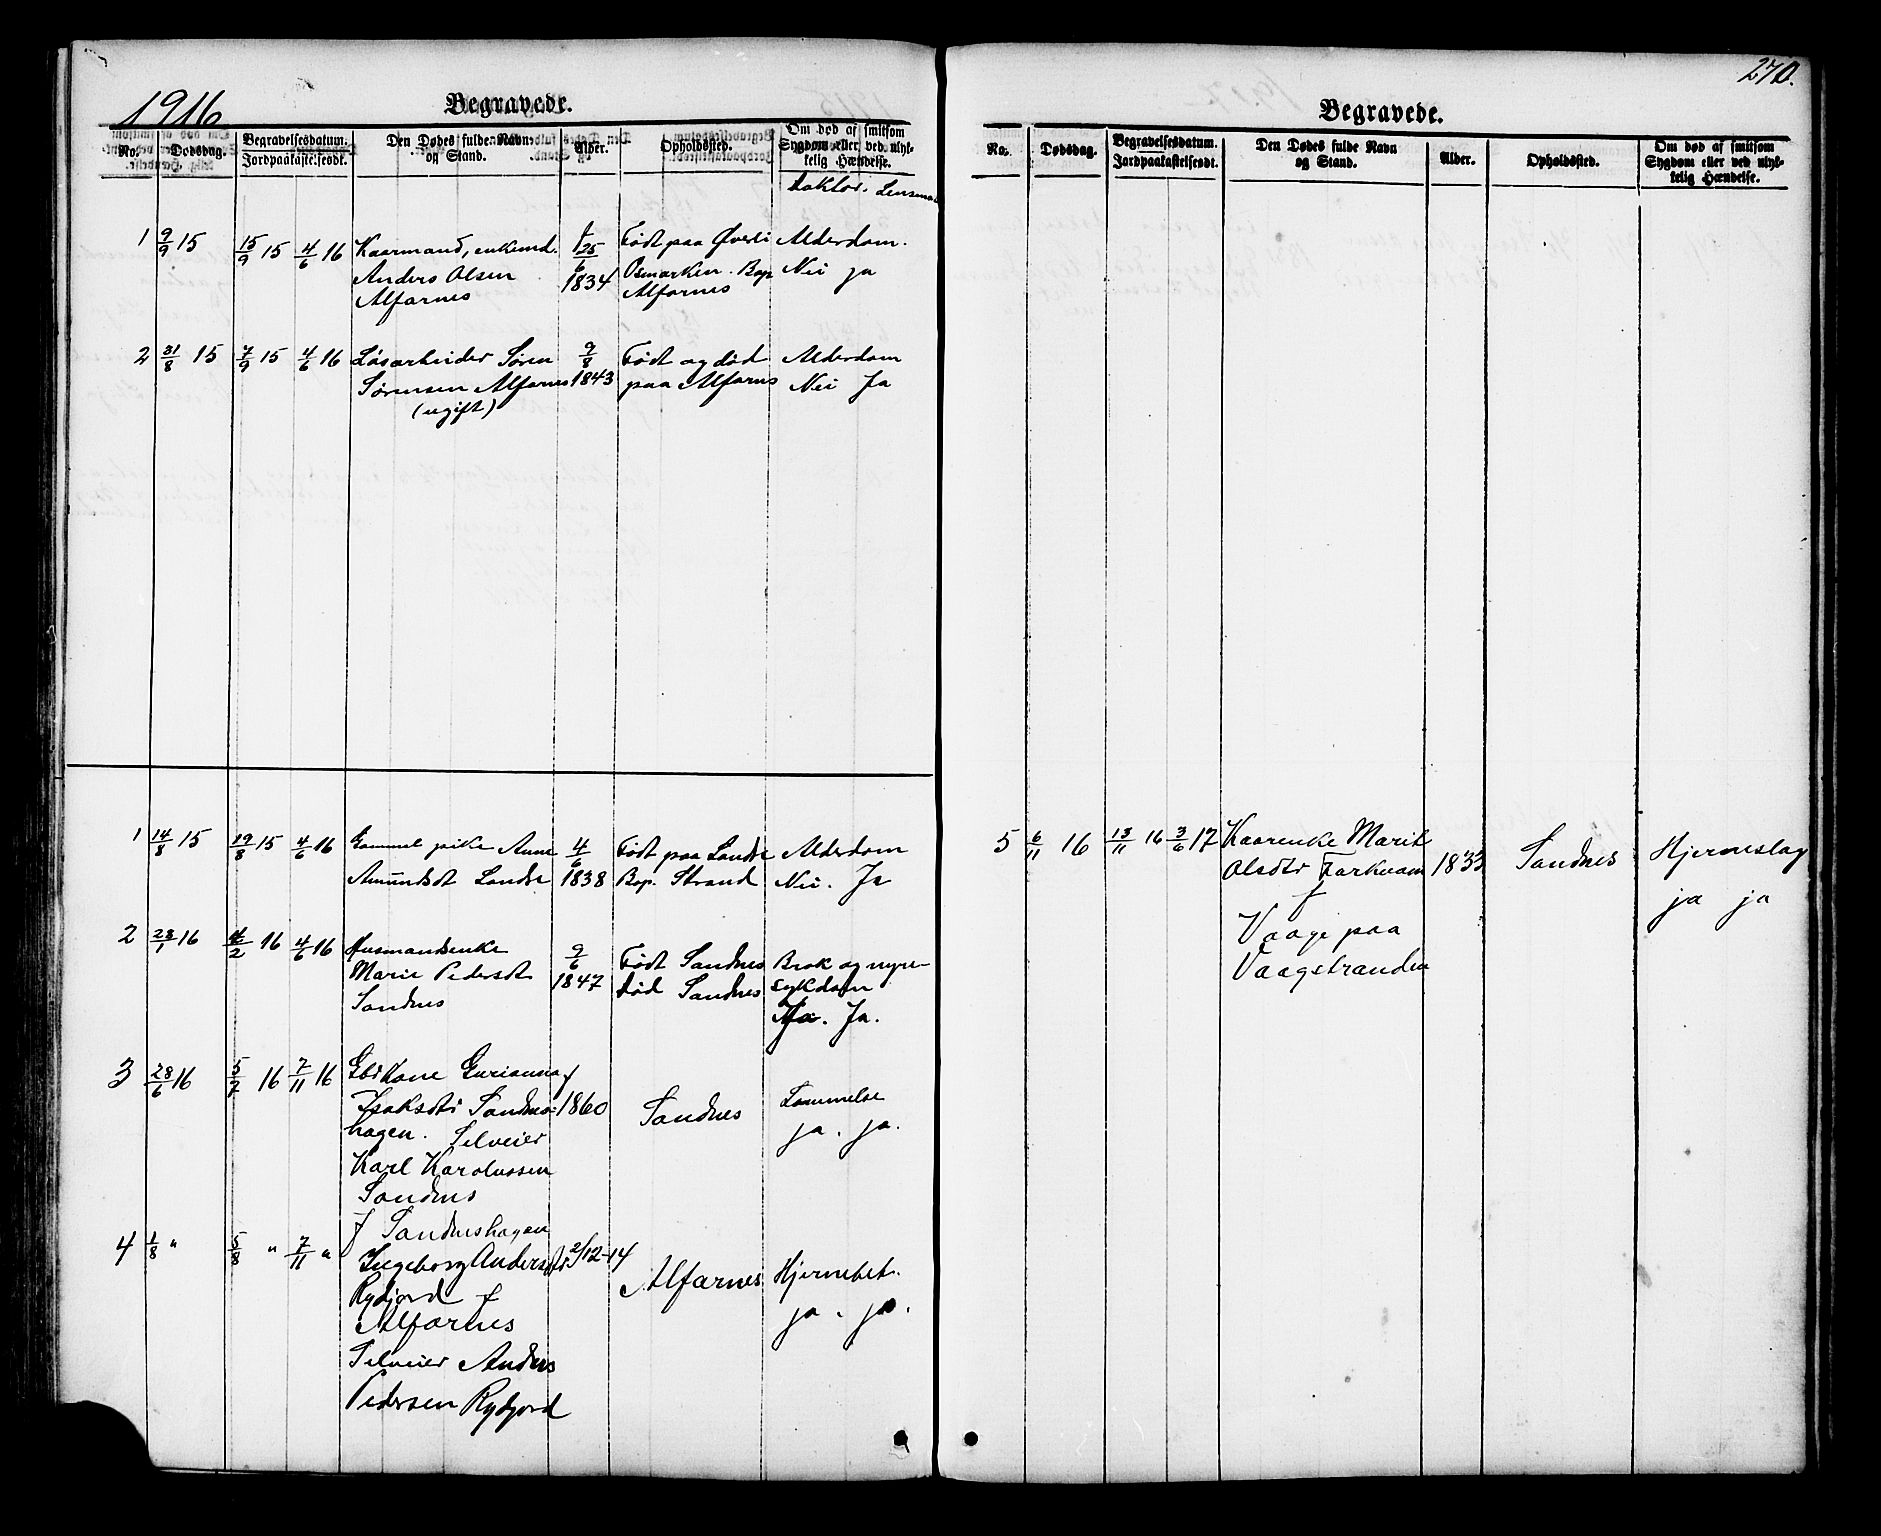 1916
Begravede.
No.
Dødsdag.
Begravelsesdatum.
Jordpaakastelsesdt.
Den Dødes fulde Navn
og Stand.
Alder.
Opholdssted.
Om død af smitsom
Sygdom eller ved ulyk-
kelig Hændelse.
Doktor. Lensmand
1 9/9 15 15/9 15 4/6 16
Kaarmand, enkemd.
Anders Olsen
Alfarnes
f 25/6
1834
Født paa Øverli
Osmarken. Bop
Alfarnes
Alderdom.
Nei ja
2 31/8 15 7/9 15 4/6 16
Løsarbeider Søren
Sørensen Alfarnes
(ugift)
9/8
1843
Født og død
paa Alfarns
Alderdom
Nei Ja
1 14/8 15 19/8 15 4/6 16
Gammel pike Anne
Amundsdt Landre
4/6
1838
Født paa Landre
Bop. Strand
Alderdom
Nei. Ja
2 23/1 16 4/2 16 4/6 16
Husmandsenke
Marie Pedersdt
Sandnes
9/6
1847
Født Sandnes
død Sandnes
Brok og nyre-
sykdom
Ja. Ja.
3 28/6 16 5/7 16 7/11 16
Gbr Kone Gurianna f
Isaksdtr Sandnes-
hagen. Selveier
Karl Karolussen
Sandnes
f Sandneshagen
1860
Sandnes
Lammelse
ja. ja.
4 1/8 " 5/8 " 7/11 "
Ingeborg Andersdtr
Rydjord f
Alfarnes
Selveier Anders
Pedersen Rydjord
2/12-14
Alfarnes
Hjernebet.
ja. ja.
270.
Begravede.
No.
Dødsdag.
Begravelsesdatum.
Jordpaakastelsesdt.
Den Dødes fulde Navn
og Stand.
Alder.
Opholdssted.
Om død af smitsom
Sygdom eller ved ulyk-
kelig Hændelse.
5 6/11 16 13/11 16 3/6 17
Kaarenke Marit
Olsdtr Farkvam
f
Vaage paa
Vaagstranden
1833
Sandnes
Hjerneslag
ja ja